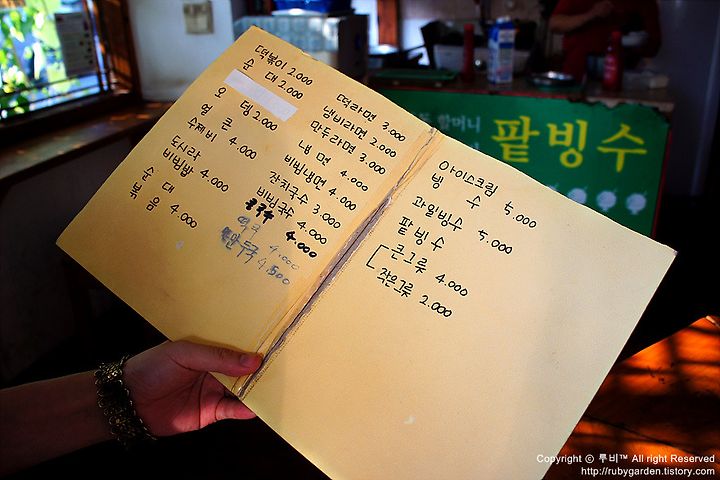 떡볶이 2.000
순 대 2.000
오 뎅 2.000
얼 큰
수제비 4.000
도시락
비빔밥 4.000
순 대
볶 음 4.000
떡라면 3.000
냄비라면 2.000
만두라면 3.000
냉 면 4.000
비빔냉면 4.000
잔치국수 3.000
비빔국수 4.000
콩국수 4.000
떡국 4.000
만두국 4.500
아이스크림
빙 수 5.000
과일빙수 5.000
팥빙수
큰그릇 4.000
작은그릇 2.000
할머니
팥빙수
Copyright ⓒ 루비™ All right Reserved
http://rubygarden.tistory.com